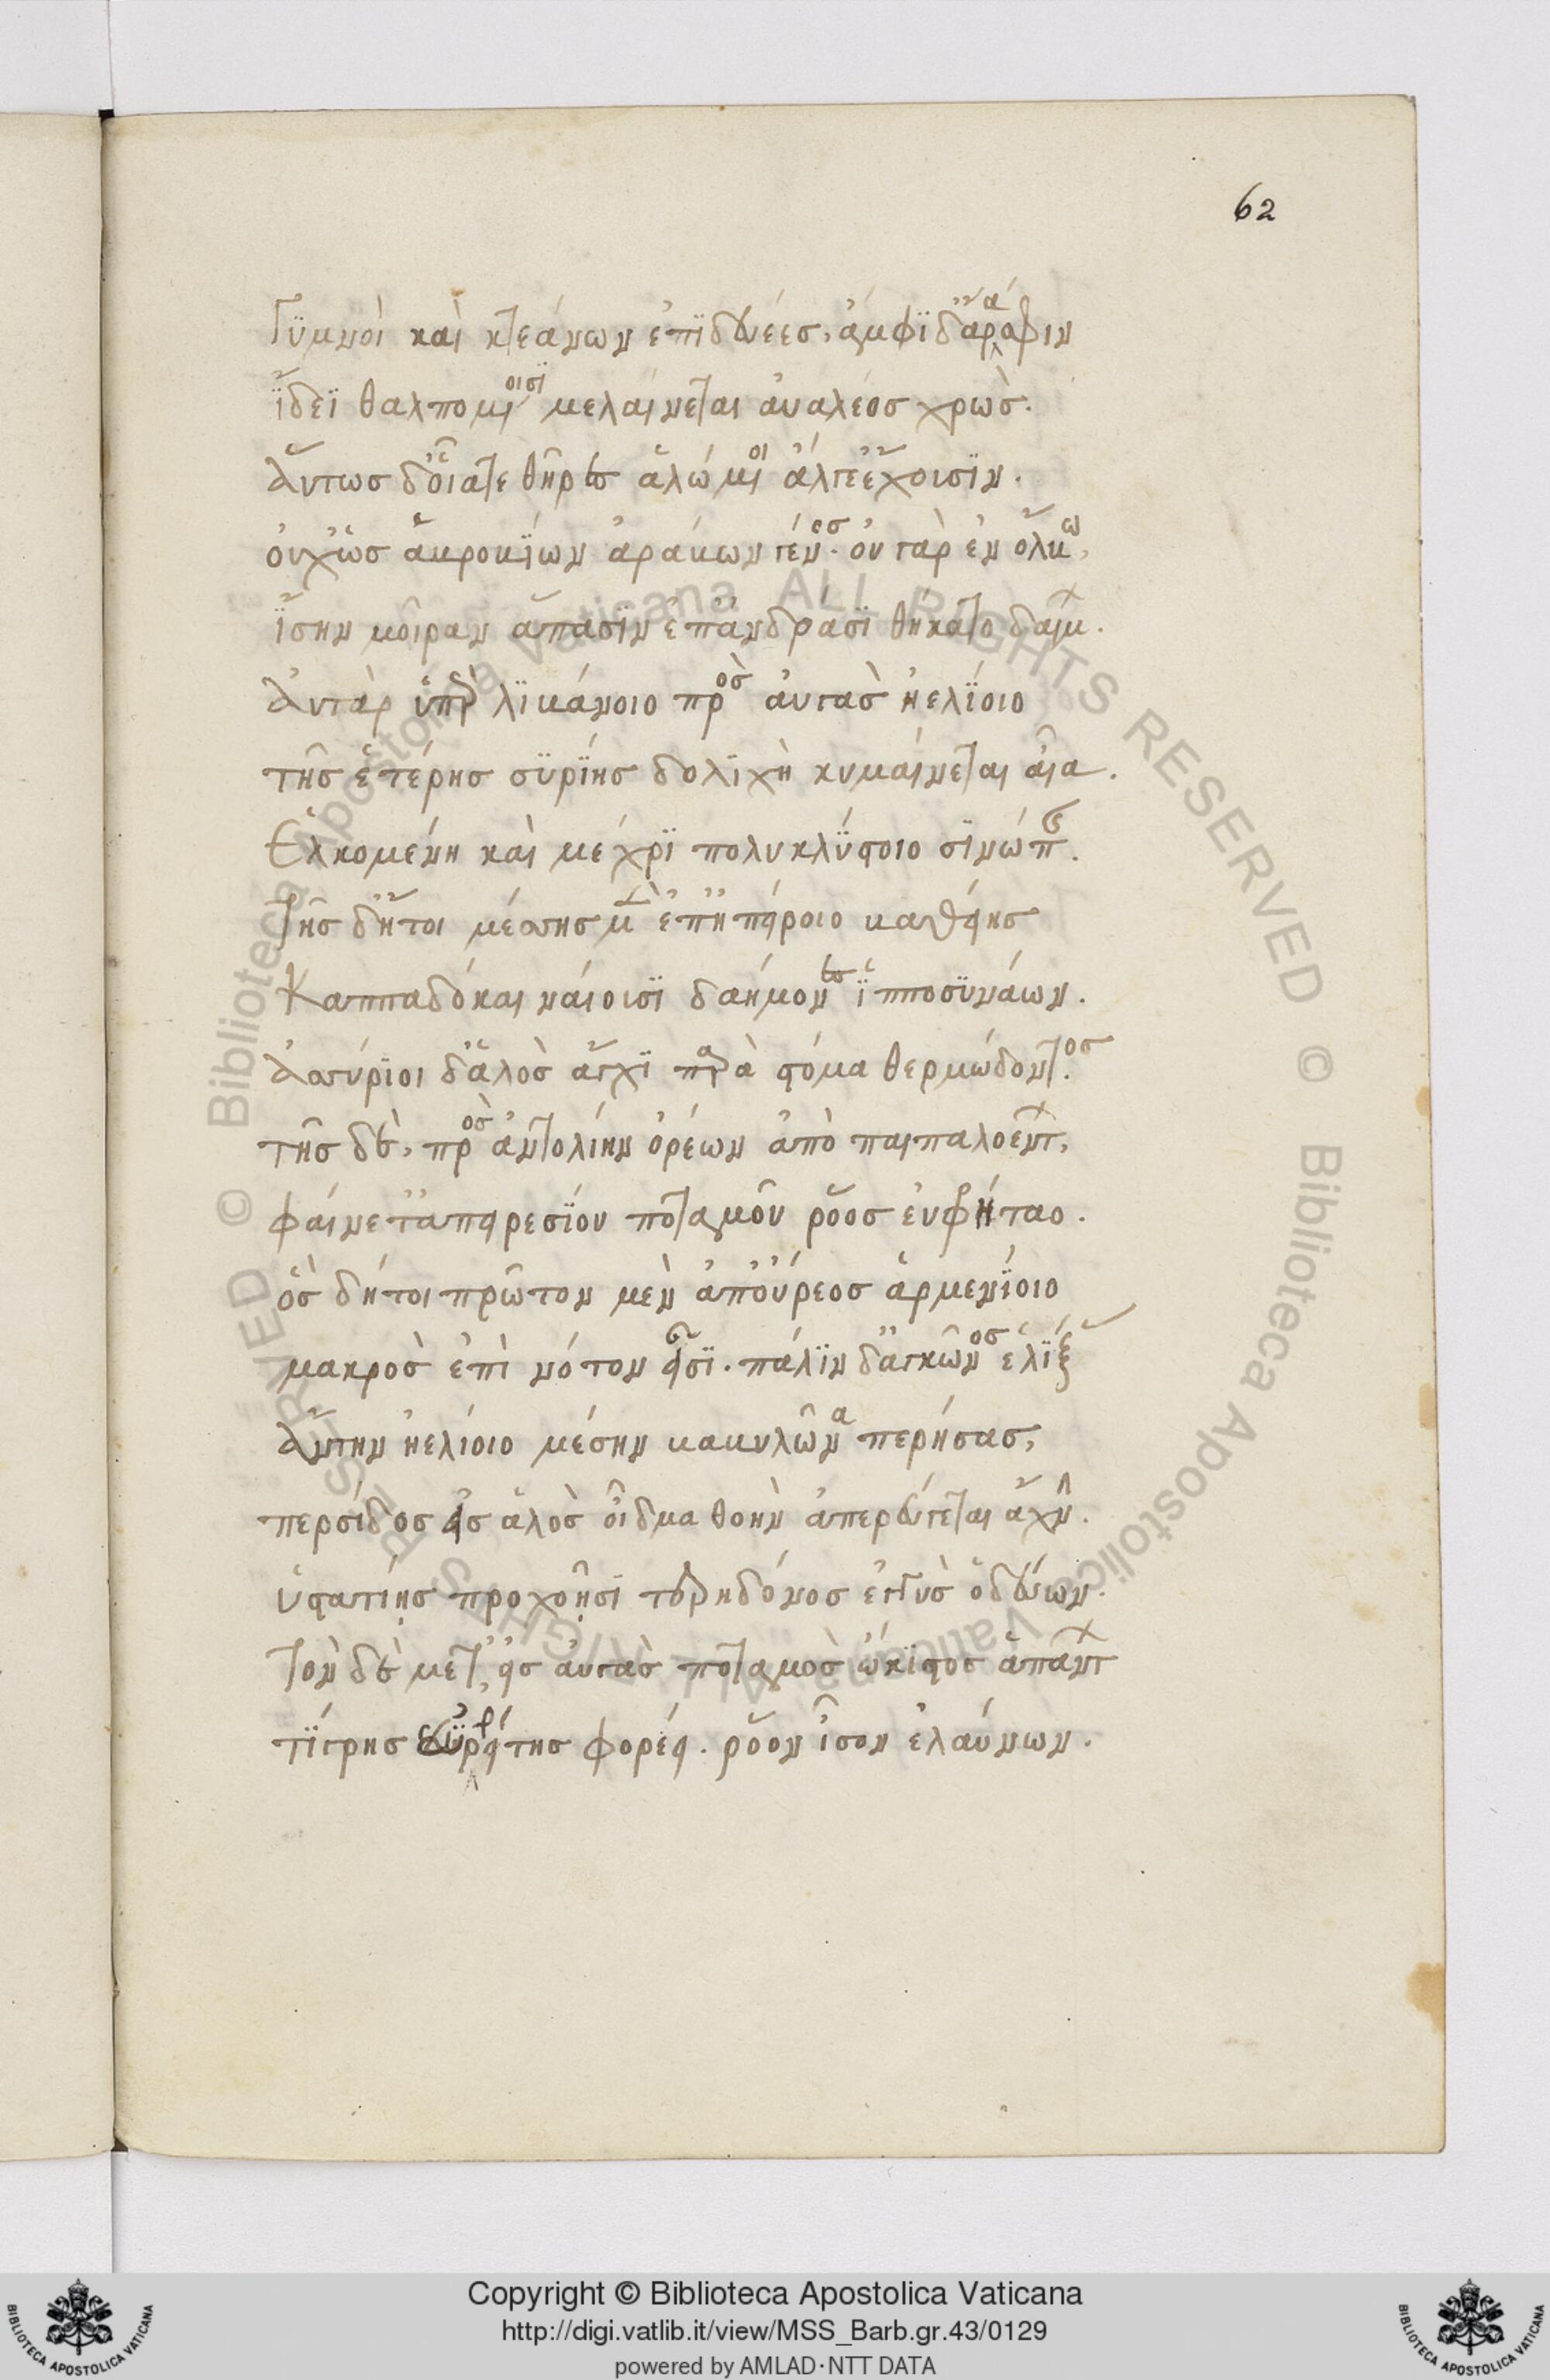 Γυμνοὶ καὶ κτεάνων ἐπιδευέες, ἀμφὶ δἄρά σφιν
ἴδεϊ θαλπομένοισι μελαίνεται ἀυαλέος χρὼς.
Ἄυτως δὅιατε θῆρες ἀλώμενοι ἄλγεἔχοισιν.
ὀυχὣς ἁβροβίων ἀράβων γένος. ὀυ γὰρ ἐν ὄλβω,
ἴσην μοῖραν ἅπασιν ἐπἀνδράσι θήκατο δαίμων.
Ἀυτὰρ ὑπὲρ λιβάνοιο πρὸς ἀυγὰς ἠελίοιο
τῆς ἑτέρης συρίης δολιχὴ κυμαίνεται ἆια.
Ἑλκομένη καὶ μέχρι πολυκλύστοιο σινώπης.
Τῆς δἤτοι μέσσης μὲν ἐπἠπείροιο βαθείης
Καππαδόκαι νάιοισι δαήμονες ἱπποσυνάων.
Ἀσσύριοι δἁλὸς ἄγχι παρὰ στόμα θερμώδοντος.
τῆς δὲ, πρὸς ἀντολίην ὀρέων ἀπὸ παιπαλοέντων,
φάινετἀπειρεσίου ποταμοῦ ῥόος ἐυφρήταο.
ὃς δήτοι πρῶτον μὲν ἀπὀύρεος ἀρμενίοιο
μακρὸς ἐπὶ νότον εἶσι. πάλιν δἀγκῶνος ἑλίξας
Ἄντην ἠελίοιο μέσην βαβυλῶνα περήσας,
περσίδος εἰς ἁλὸς ὀῖδμα θοὴν ἀπερεύγεται ἄχνην.
ὑστατίῃς προχοῇσι τερηδόνος ἐγγὺς ὁδεύων.
Τὸν δὲ μέτ, εἰς ἀυγὰς ποταμὸς ὤκιστος ἁπάντων
τίγρης ἐυρρείτης φορέει. ῥόον ἶσον ἐλαύνων.
62
Copyright © Biblioteca Apostolica Vaticana
http://digi.vatlib.it/view/MSS_Barb.gr.43/0129
powered by AMLAD·NTT DATA